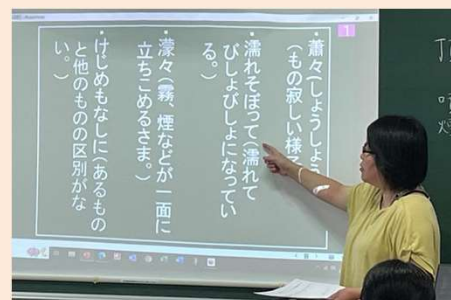 1
・蕭々(しょうしょう
(もの寂しい様子
・濡れそぼって(濡れて
びしょびしょになってい
る。)
・濛々(霧、煙などが一面に
立ちこめるさま。)
・けじめもなしに(あるもの
と他のものの区別がな
い。)